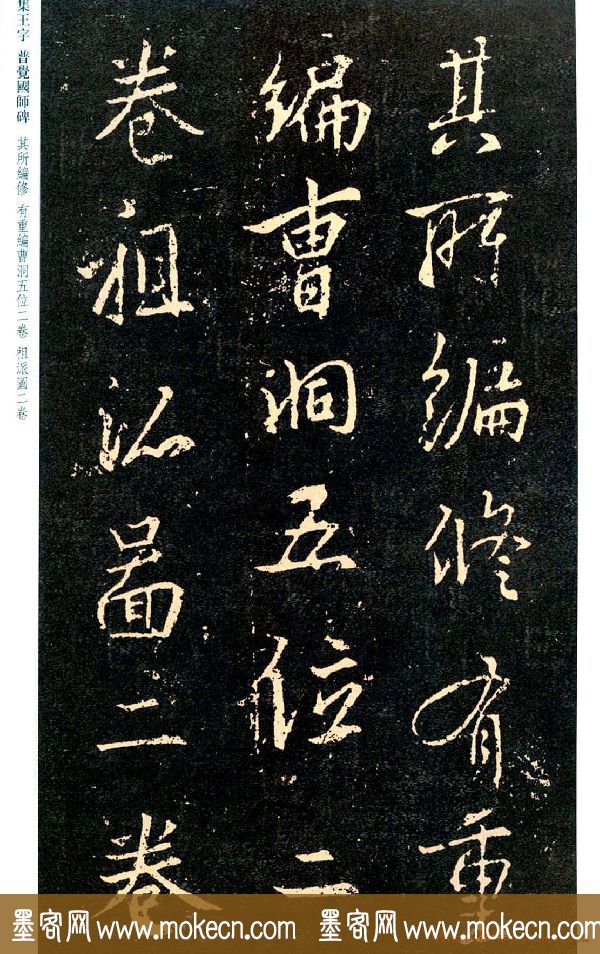 其所編修有重
編曹洞五位二
卷祖派圖二卷
集王字 普覺國師碑 其所編修 有重編曹洞五位二卷 祖派圖二卷
墨客网 www.mokecn.com 墨客网 www.mokecn.com